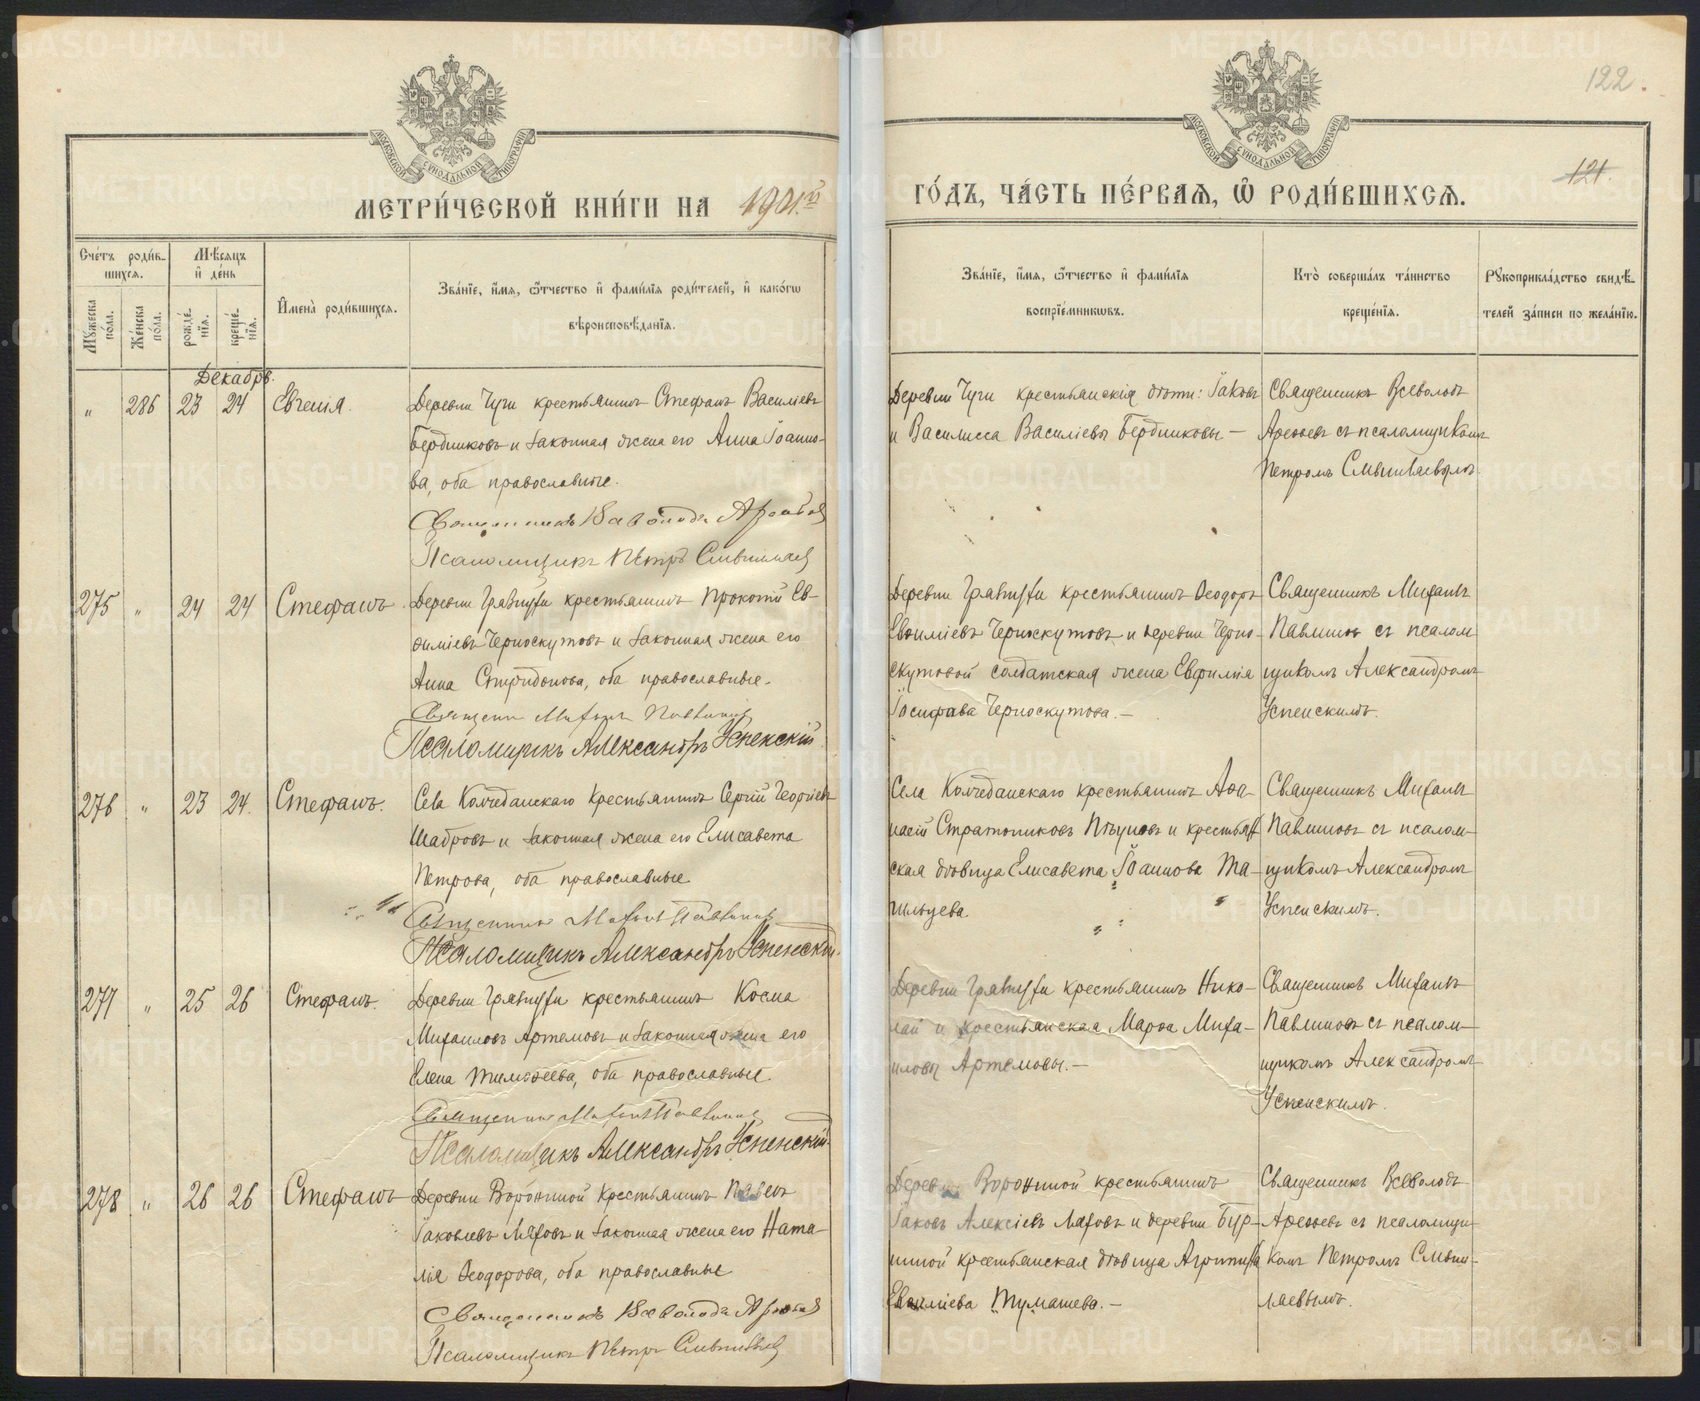 122.
121.
МЕТРИ́ЧЕСКОЙ КНИ́ГИ НА 1901.й
ГО́ДЪ, ЧА́СТЬ ПЕ́РВАЯ, Ѽ РОДИ́ВШИХСЯ.
Сче́тъ роди́в-
шихся.
Мѣ́сяцъ
и҆ де́нь
Мꙋ́жеска
по́ла.
Же́нска
по́ла.
рожде́-
нїѧ.
креще́-
нїѧ.
И҆мена̀ роди́вшихсѧ.
Зва́нїе, и҆́мѧ, ѻ҆́тчество и҆ фами́лїѧ роди́телей, и҆ како́гѡ
вѣроисповѣ́данїѧ.
Зва́нїе, и҆́мѧ, ѻ҆́тчество и҆ фами́лїѧ
воспрїе́мникѡвъ.
Кто̀ соверша́лъ та́инство
креще́нїѧ.
Рꙋкоприкла́дство свидѣ́-
телей за́писи по жела́нїю.
Декабрь.
" 286 23 24 Евгенія.
Деревни Чуги крестьянинъ Стефанъ Василіевъ
Бердниковъ и законная жена его Анна Іоанно-
ва, оба православные.
Священникъ Всеволодъ
Псаломщикъ Петръ
Деревни Чуги крестьянскія дѣти: Іаковъ
и Василисса Василіевы Бердниковы —
Священникъ Всеволодъ
съ псаломщикомъ
Петромъ
275 " 24 24 Стефанъ.
Деревни крестьянинъ Прокопій Ев-
ѳиміевъ Черноскутовъ и законная жена его
Анна Спиридонова, оба православные.
Псаломщикъ Александръ Успенскій.
Деревни крестьянинъ Ѳеодоръ
Евѳиміевъ Черноскутовъ и деревни Черно-
скутовой солдатская жена Евфимія
Іосифова Черноскутова. —
Священникъ Михаилъ
Павлиновъ съ псалом-
щикомъ Александромъ
Успенскимъ.
276 " 23 24. Стефанъ.
Села Колчеданскаго крестьянинъ Сергій Георгіевъ
Шабровъ и законная жена его Елисавета
Петрова, оба православные
Священникъ Михаилъ Павлиновъ
Псаломщикъ Александръ Успенскій.
Села Колчеданскаго крестьянинъ Аѳа-
насій Стратониковъ и крестьян-
ская дѣвица Елисавета Іоаннова Та-
шлыцева
Священникъ Михаилъ
Павлиновъ съ псалом-
щикомъ Александромъ
Успенскимъ.
277 " 25 26 Стефанъ.
Деревни крестьянинъ Косма
Михаиловъ Артемовъ и законная жена его
Елена Тимоѳеева, оба православные.
Священникъ Михаилъ Павлиновъ
Псаломщикъ Александръ Успенскій.
Деревни крестьянинъ Нико-
лай и крестьянская Марѳа Миха-
иловы Артемовы. —
Священникъ Михаилъ
Павлиновъ съ псалом-
щикомъ Александромъ
Успенскимъ.
278 " 26 26 Стефанъ
Деревни Ворониной крестьянинъ Павелъ
Іаковлевъ Ляховъ и законная жена его Ната-
лія Ѳеодорова, оба православные
Священникъ Всеволодъ
Псаломщикъ Петръ
Деревни Ворониной крестьянинъ
Іаковъ Алексіевъ Ляховъ и деревни Бур-
ниной крестьянская дѣвица Агриппина
Евѳиміева Тумашева. —
Священникъ Всеволодъ
съ псаломщи-
комъ Петромъ
METRIKI.GASO-URAL.RU